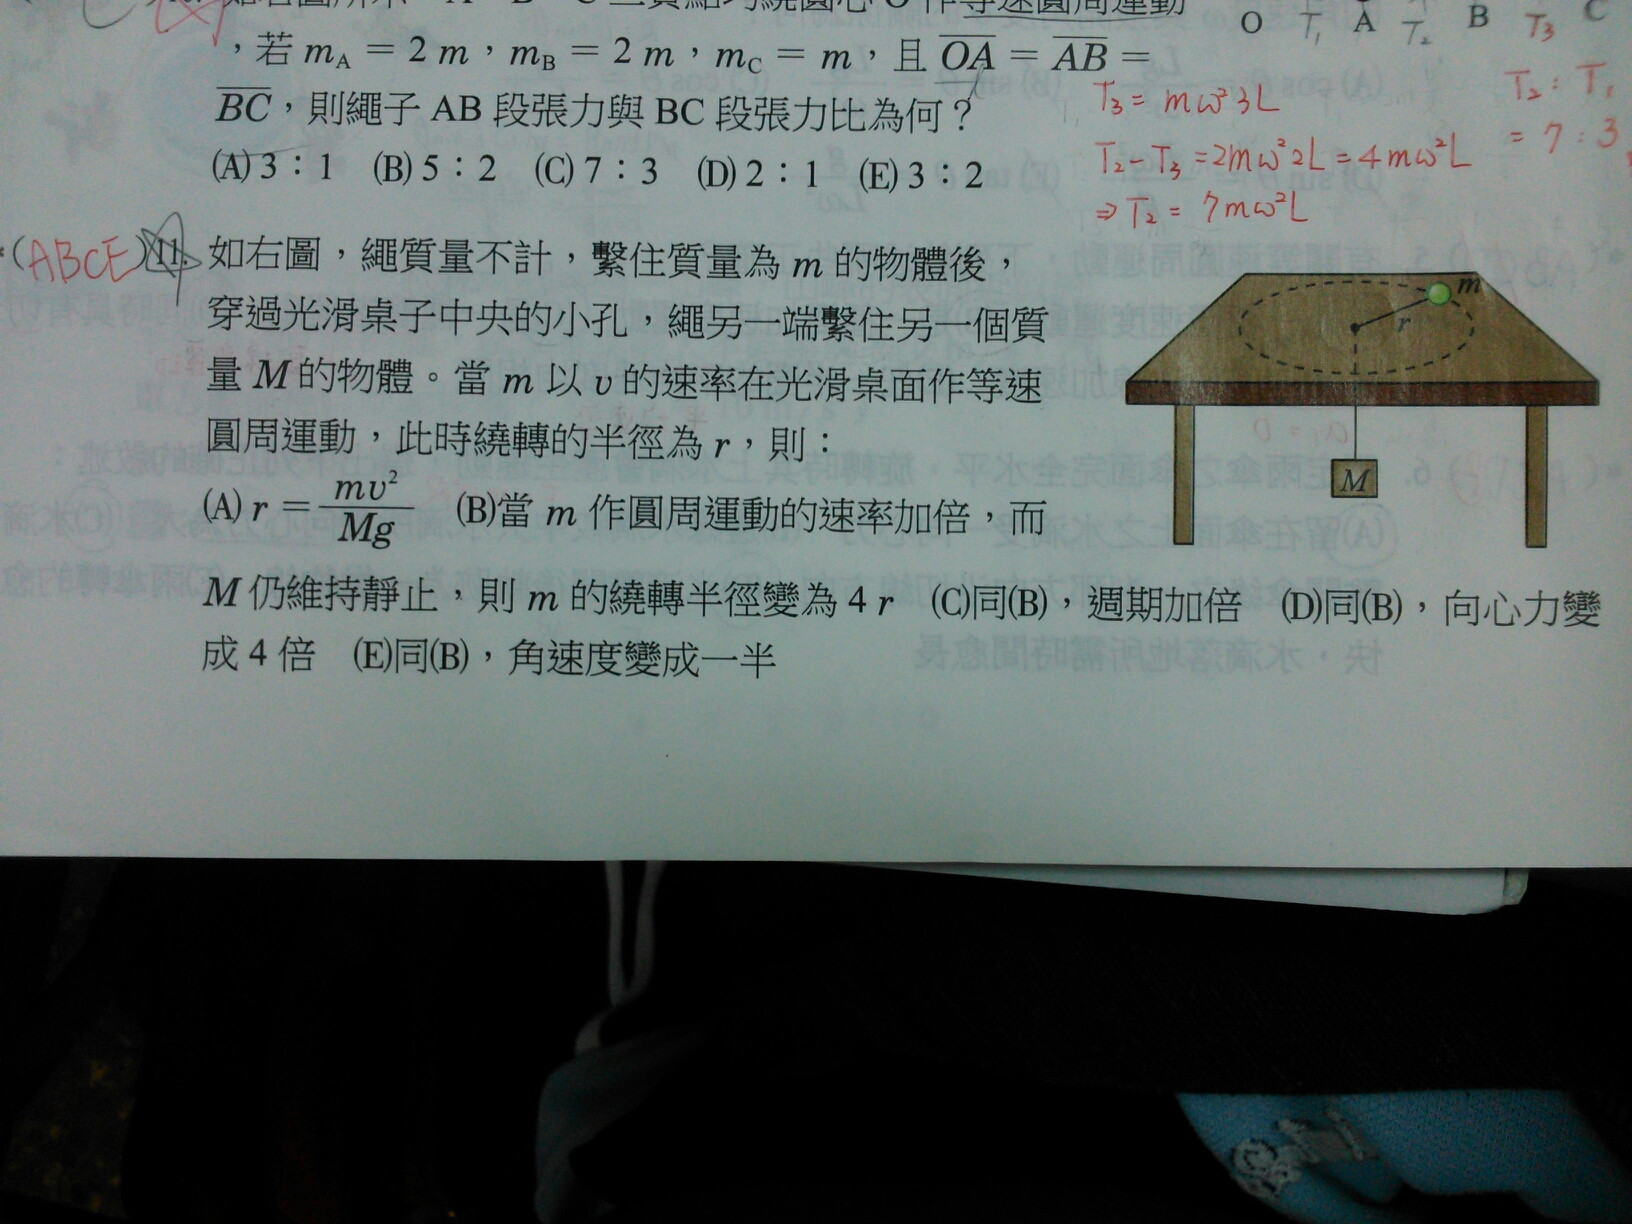 O T₁ A T₂ B T₃ C
，若 mA = 2 m，mB = 2 m，mC = m，且 OA = AB =
BC，則繩子 AB 段張力與 BC 段張力比為何？
(A) 3：1 (B) 5：2 (C) 7：3 (D) 2：1 (E) 3：2
T₃ = mω²3L
T₂ - T₃ = 2mω²2L = 4mω²L
⇒ T₂ = 7mω²L
T₂ : T₁
= 7 : 3
(ABCE) 11. 如右圖，繩質量不計，繫住質量為 m 的物體後，
穿過光滑桌子中央的小孔，繩另一端繫住另一個質
量 M 的物體。當 m 以 v 的速率在光滑桌面作等速
圓周運動，此時繞轉的半徑為 r，則：
(A) r = mv²/Mg (B)當 m 作圓周運動的速率加倍，而
M 仍維持靜止，則 m 的繞轉半徑變為 4 r (C)同(B)，週期加倍 (D)同(B)，向心力變
成 4 倍 (E)同(B)，角速度變成一半
m
r
M